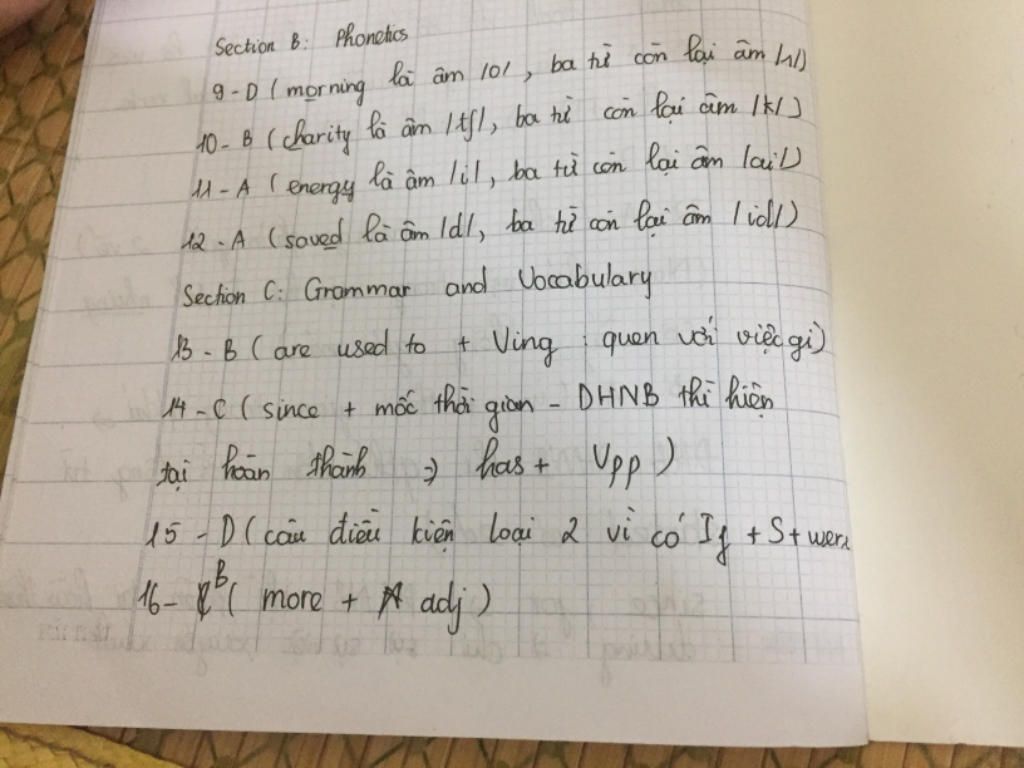 Section B: Phonetics
9 - D ( morning là âm /o/, ba từ còn lại âm /ʌ/)
10 - B ( charity là âm /tʃ/, ba từ còn lại âm /k/)
11 - A ( energy là âm /i/, ba từ còn lại âm /ai/)
12 - A ( saved là âm /d/, ba từ còn lại âm /id/)
Section C: Grammar and Vocabulary
13 - B ( are used to + Ving : quen với việc gì)
14 - C ( since + mốc thời gian - DHNB thì hiện
tại hoàn thành => has + Vpp )
15 - D ( câu điều kiện loại 2 vì có If + S + were
16 - B ( more + adj )